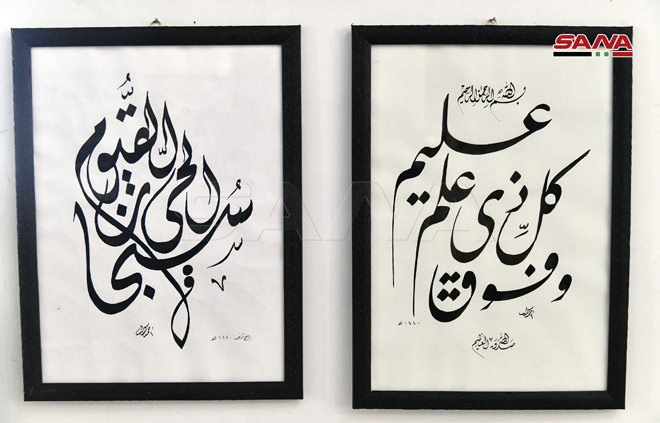 SANA
سبحان
الحي
القيوم
١٤٤٠ هـ
بسم الله الرحمن الرحيم
وفوق
كل ذي علم
عليم
١٤٤٠ هـ
صدق الله العظيم